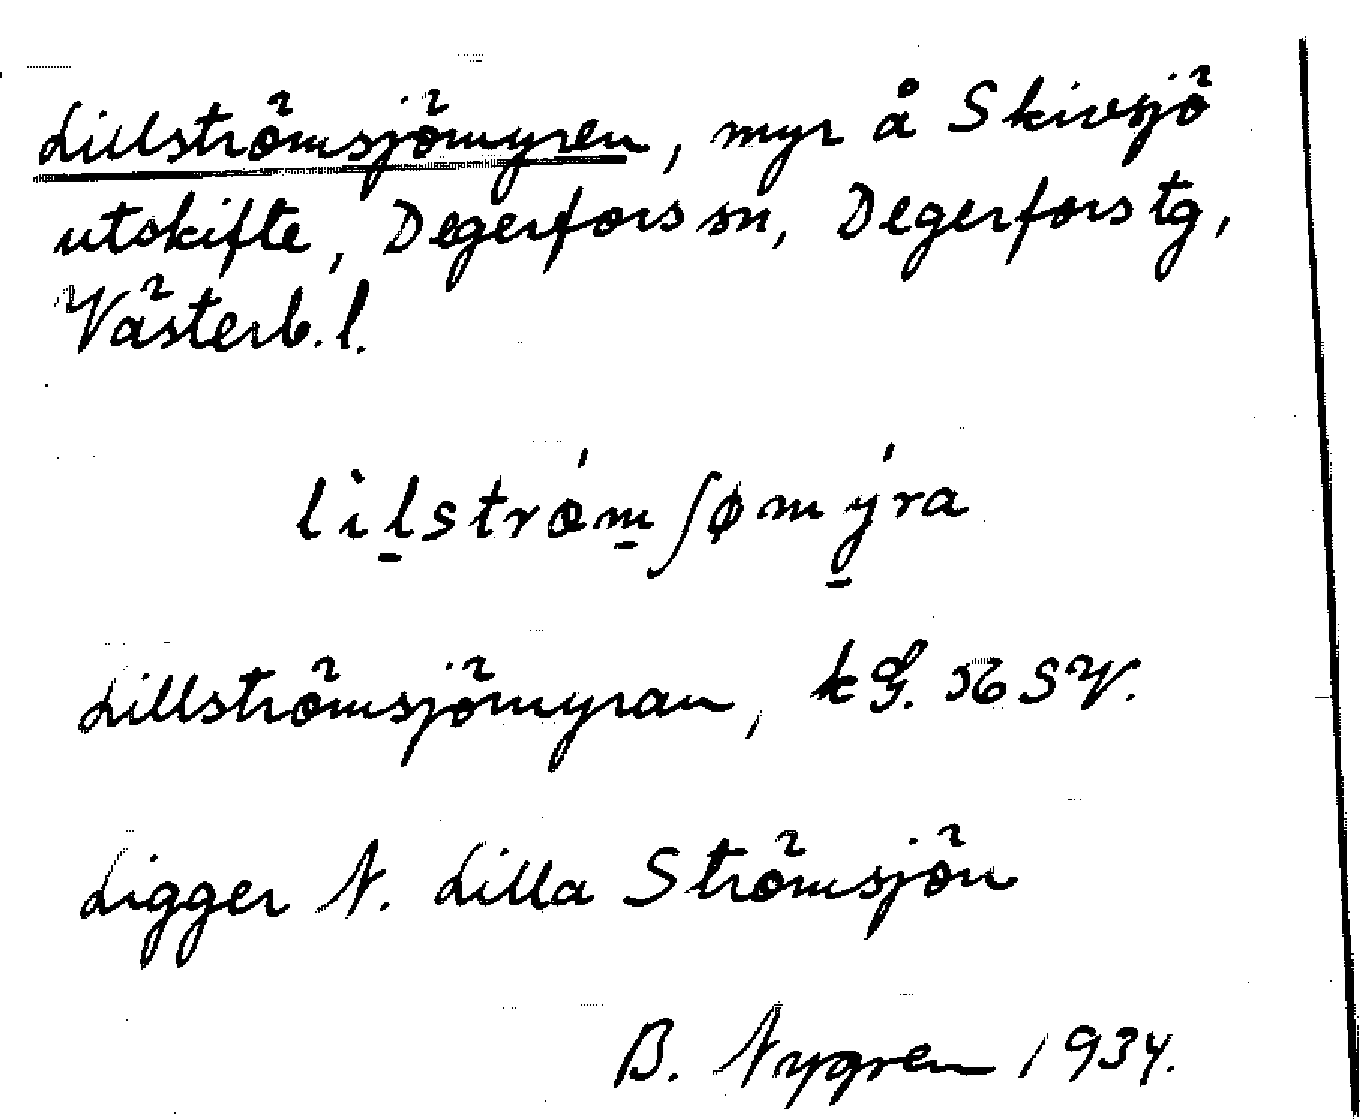 Lillströmsjömyren, myr å Skivsjö
utskifte, Degerfors sn, Degerfors tg,
Västerb. l.
lìl̠strö́m̠ʃømý̠ra
Lillströmsjömyran, kG. 56 SV.
Ligger N. Lilla Strömsjön
B. Nygren 1934.